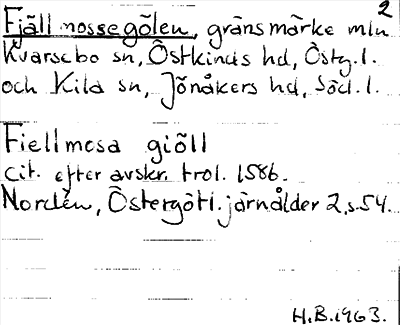 2
Fjällmossegölen, gränsmärke mln
Kvarsebo sn, Östkinds hd, Östg. l.
och Kila sn, Jönåkers hd, Söd. l.
Fiellmosa giöll
cit. efter avskr. trol. 1586.
Nordén, Östergötl. järnålder 2, s. 54.
H.B. 1963.